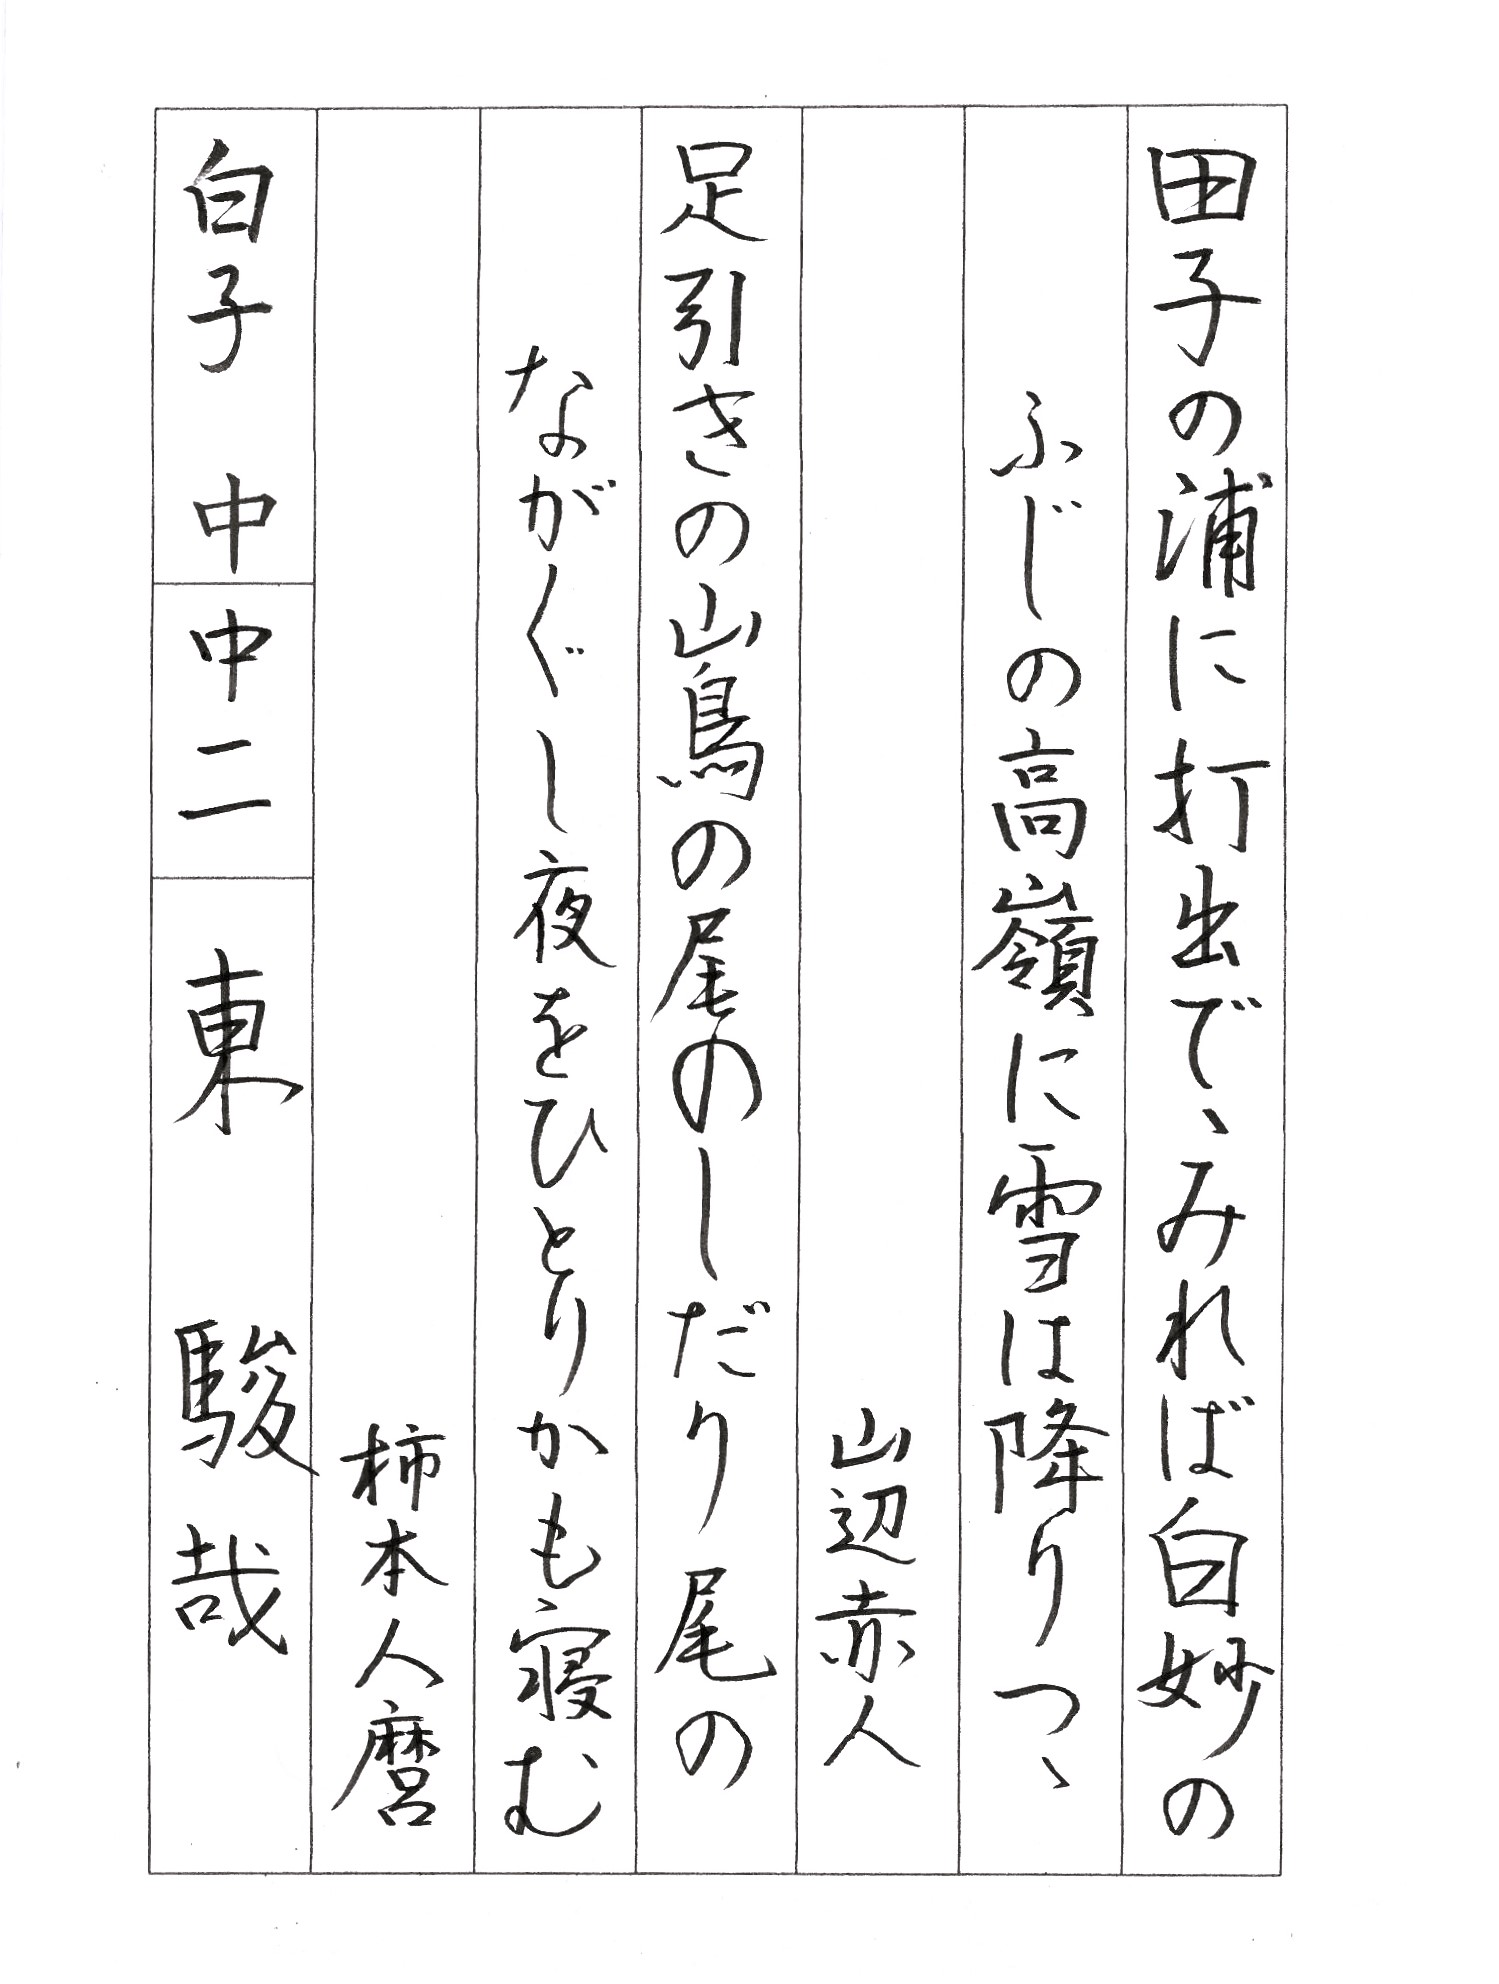 田子の浦に打出でゝみれば白妙の
ふじの高嶺に雪は降りつゝ
山辺赤人
足引きの山鳥の尾のしだり尾の
ながぐし夜をひとりかも寝む
柿本人麿
白子中 中二 東駿哉